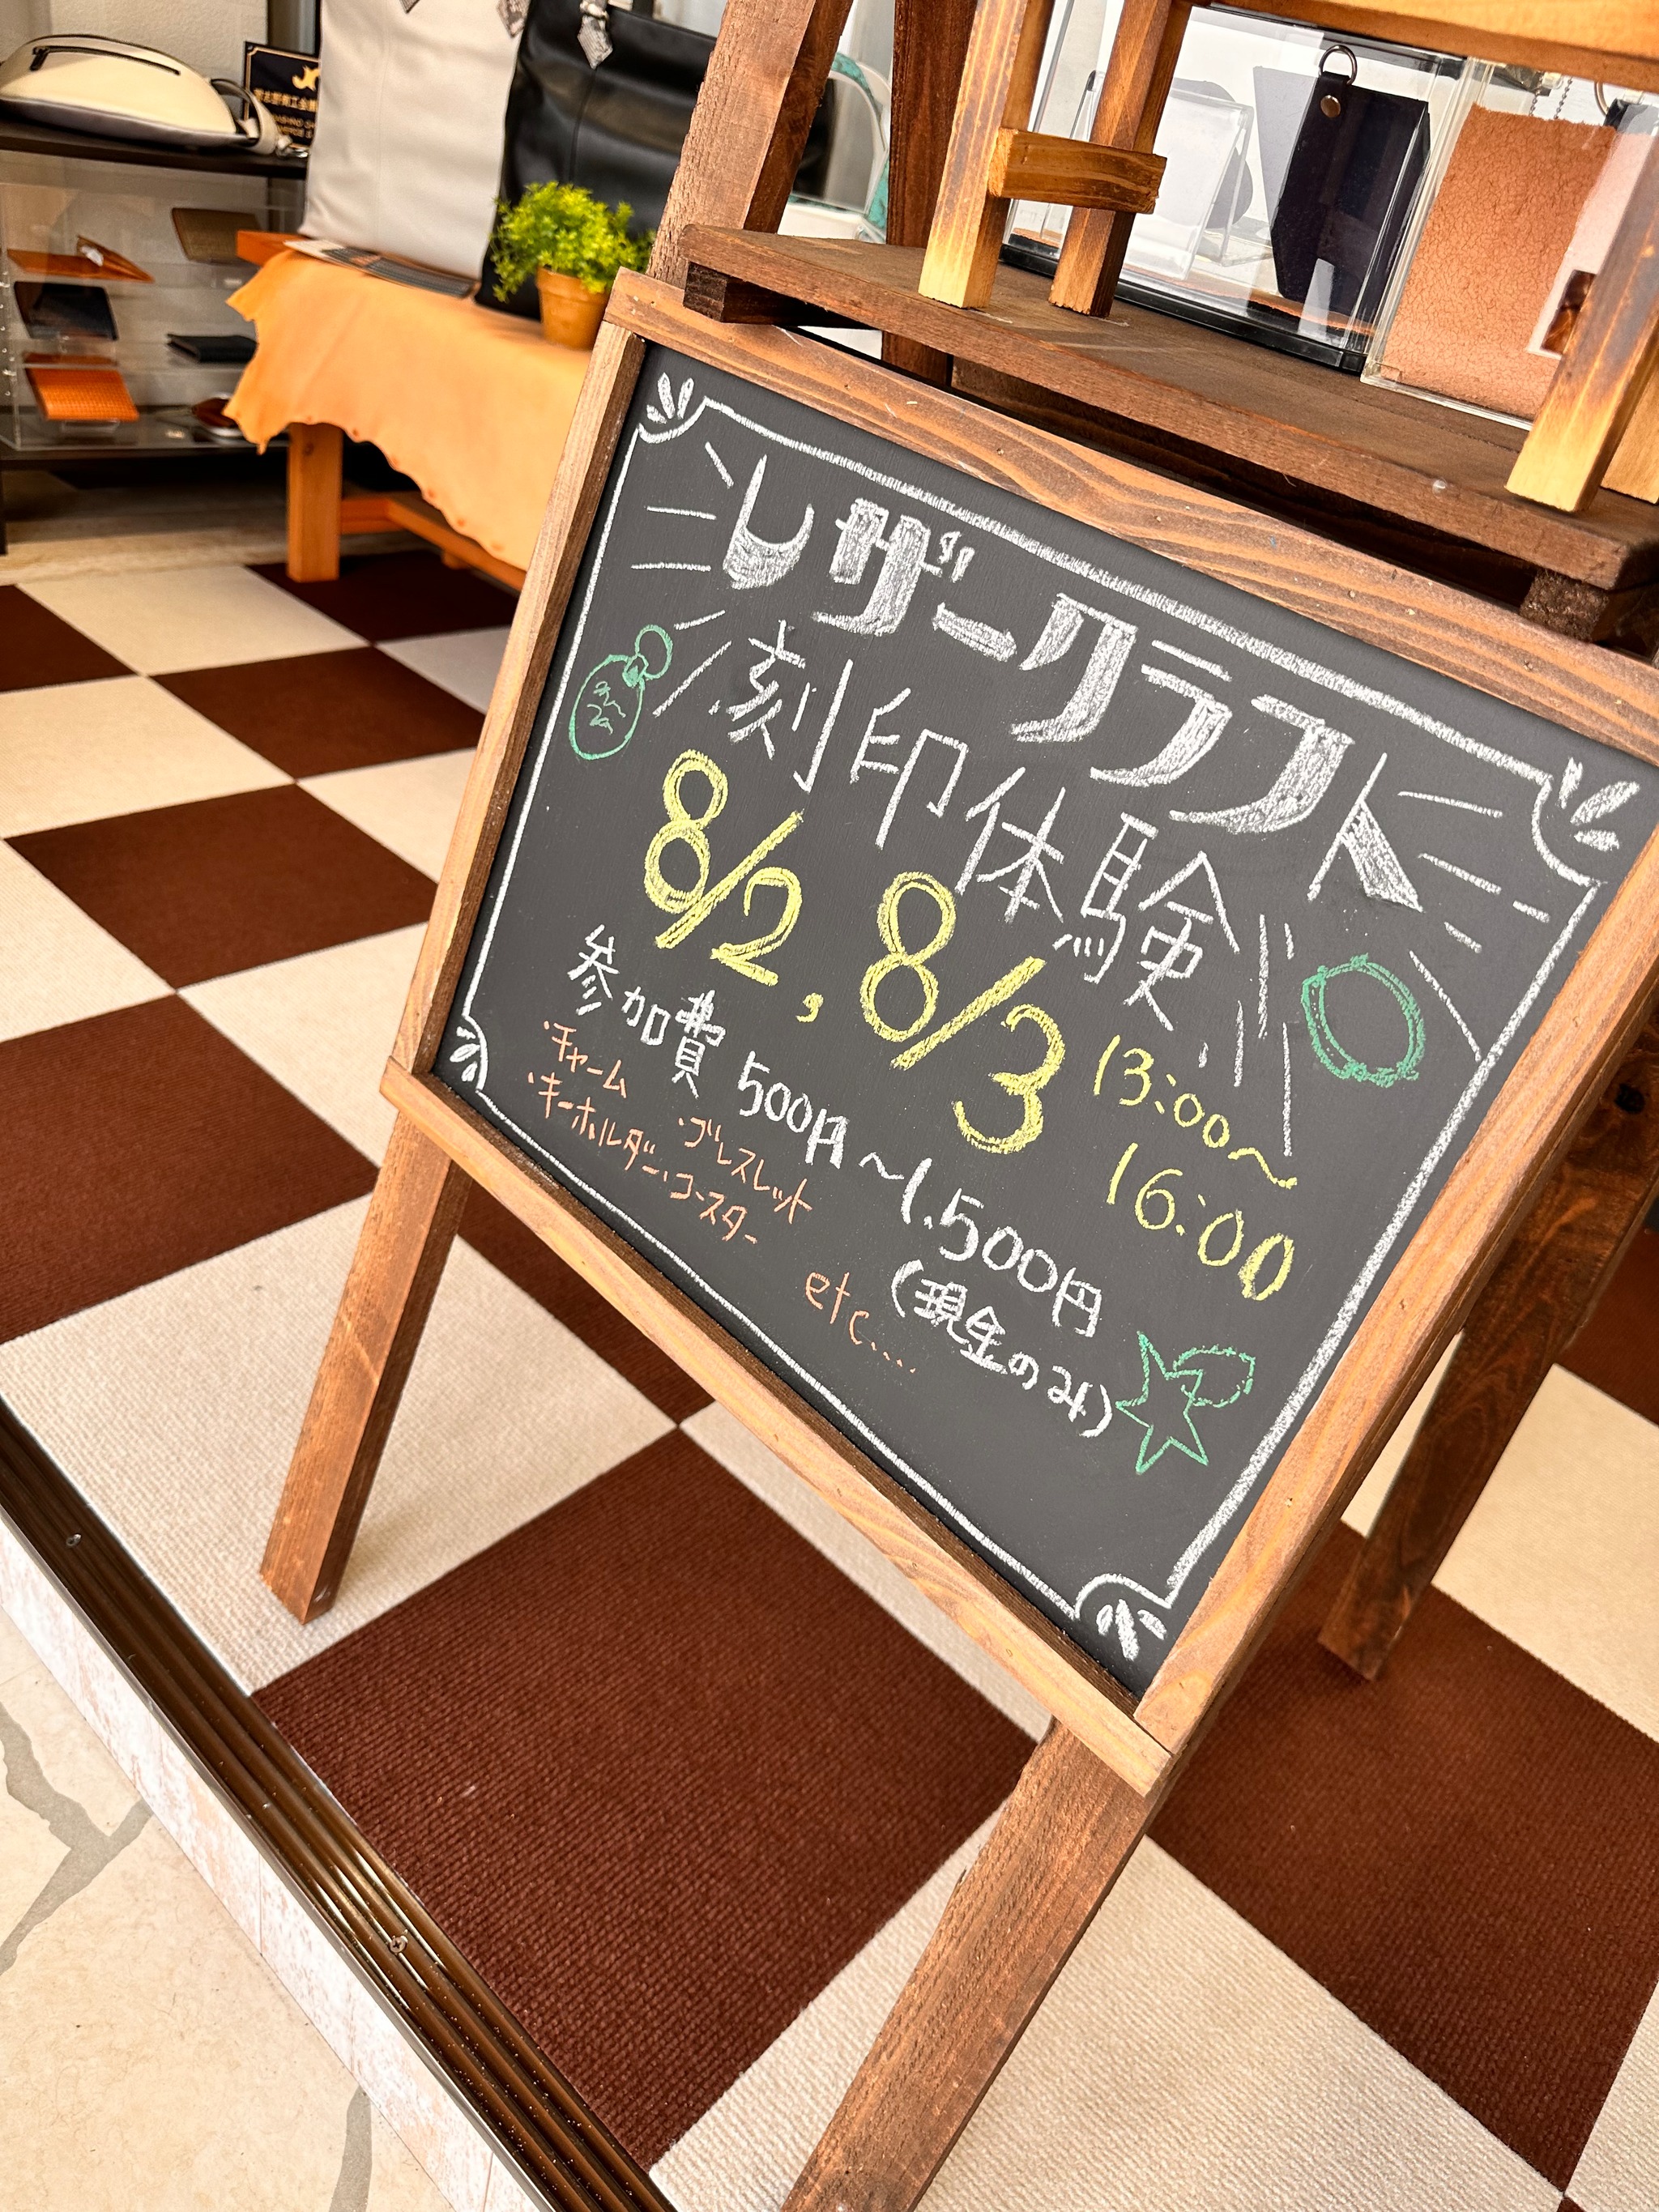 レザークラフト
刻印体験!!
8/2, 8/3
13:00〜
16:00
参加費 500円〜1.500円
(現金のみ)
・チャーム
・ブレスレット
・キーホルダー・コースター
etc....